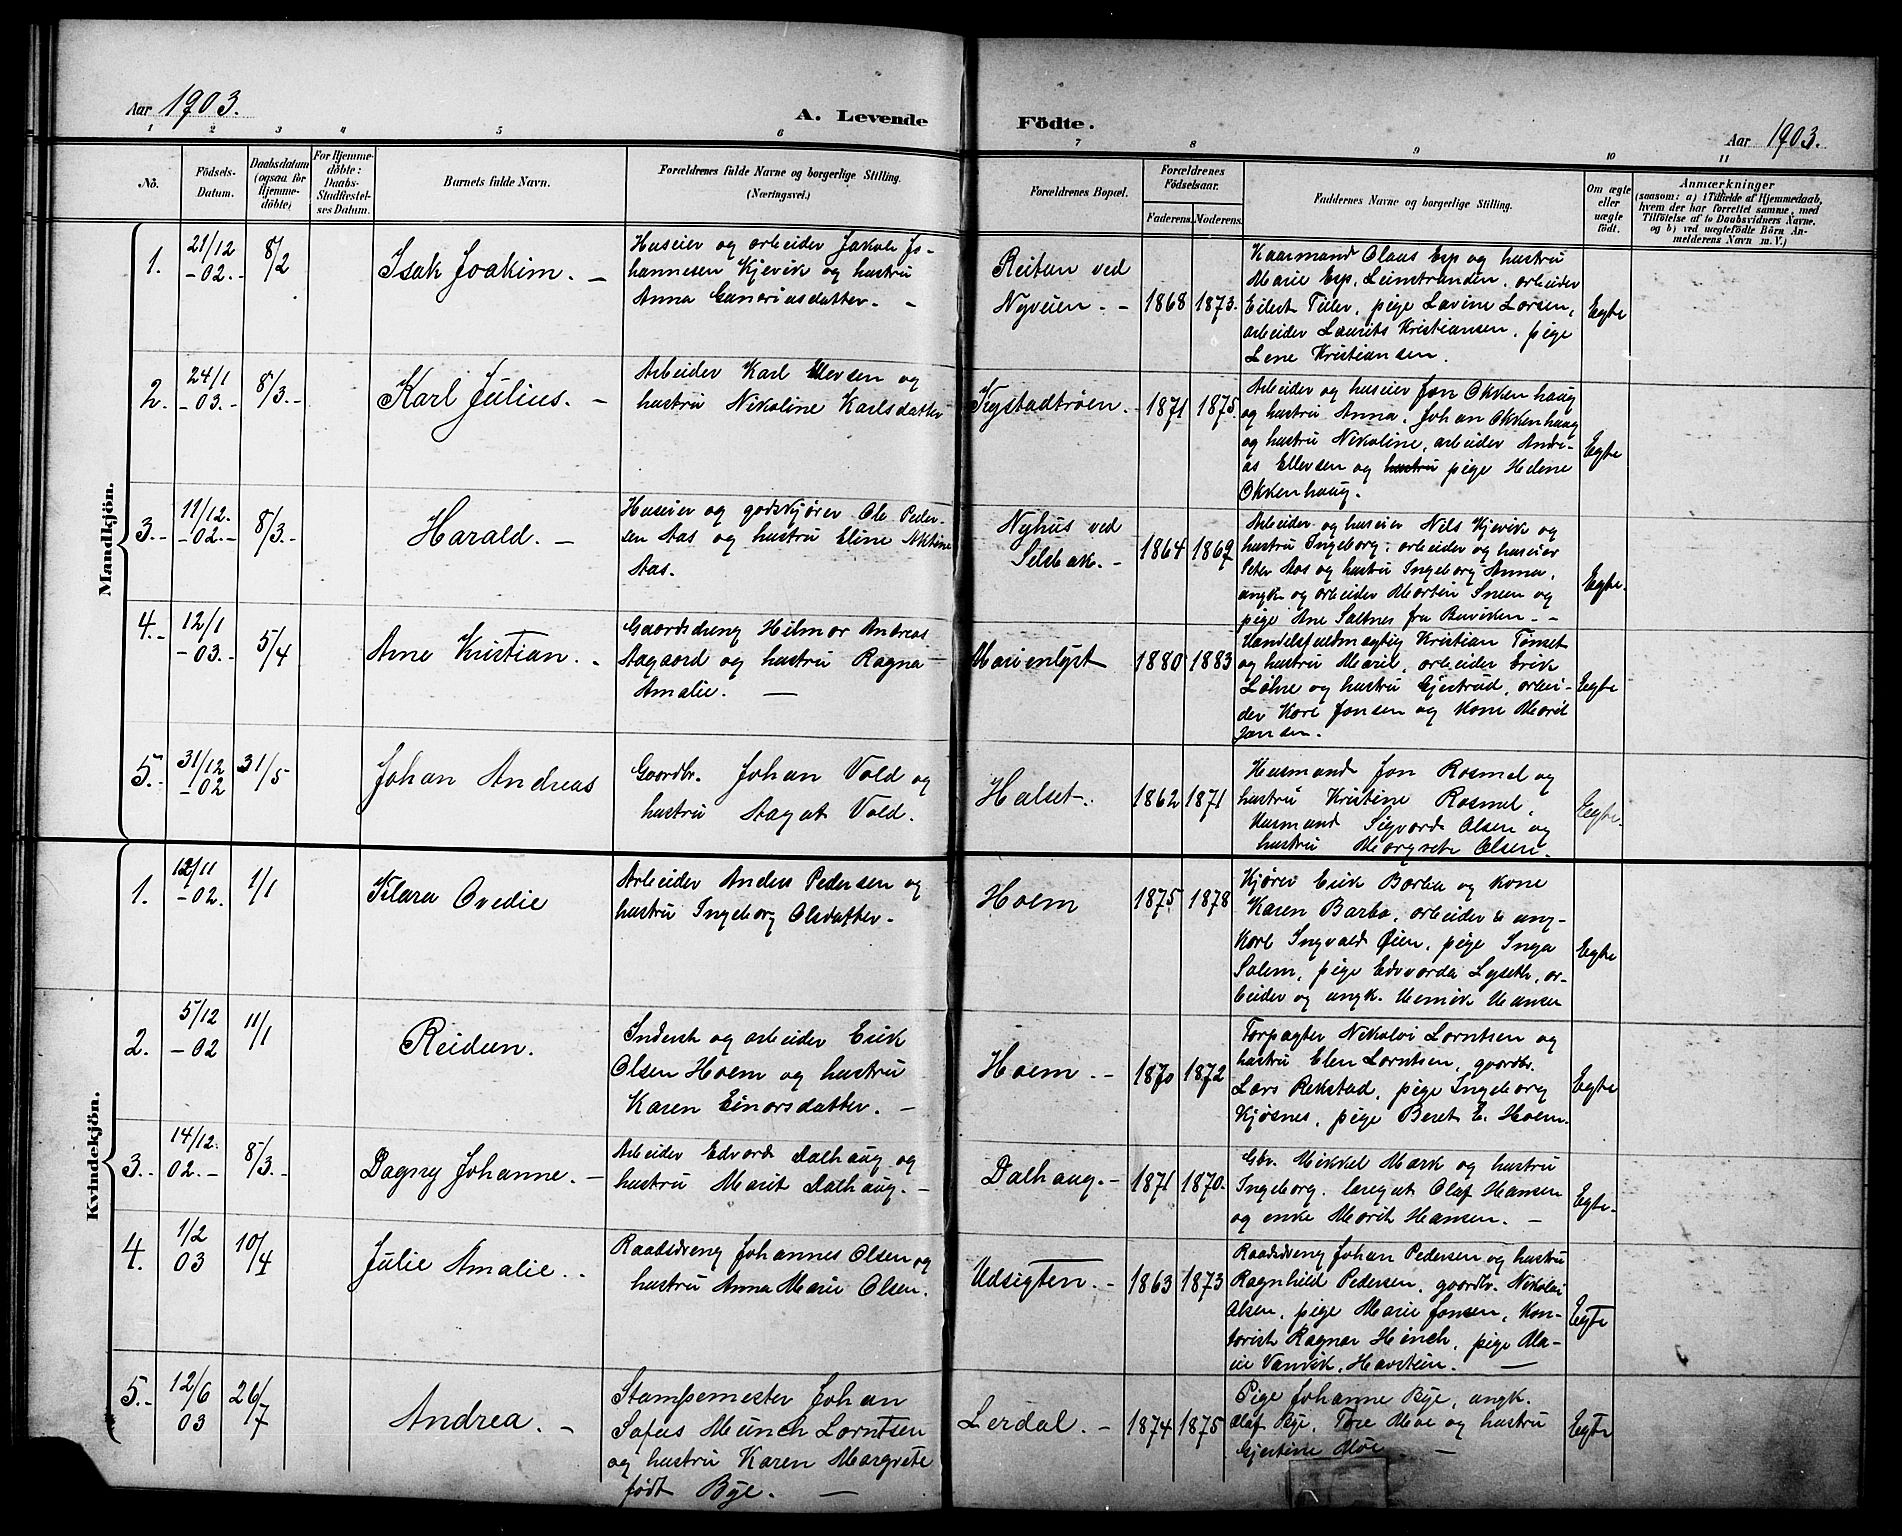 Aar 1903.
A. Levende
Födte.
Aar 1903.
1 2 3 4 5 6 7 8 9 10 11
No.
Födsels-
Datum.
Daabsdatum
(ogsaa for
Hjemme-
döbte)
For Hjemme-
döbte:
Daabs-
Stadfæstel-
ses Datum.
Barnets fulde Navn.
Forældrenes fulde Navne og borgerlige Stilling.
(Næringsvei.)
Forældrenes Bopæl.
Forældrenes
Födselsaar.
Faderens.
Moderens.
Faddernes Navne og borgerlige Stilling.
Om ægte
eller
uægte
födt.
Anmærkninger
(saasom: a) i Tilfælde af Hjemmedaab,
hvem der har forrettet samme, med
Tilföielse af to Daabsvidners Navne.
og b) ved uegtefödte Börn An-
melderens Navn m. V.)
Mandkjön.
1.
21/12
-02.-
8/2
Isak Joakim. -
Huseier og arbeider Jakob Jo-
hannesen Kjevik og hustru
Anna Guneriusdatter. -
Reitan ved
Nyveien. -
1868
1873.
Kaarmand Olaus Esp og hustru
Marie Esp, Leinstranden, arbeider
Eilert Tiller, pige Lavine Larsen,
arbeider Laurits Kristiansen, pige
Lene Kristiansen.
Egte
2.
24/1
-03.-
8/3.-
Karl Julius. -
Arbeider Karl Ellevsen og
hustru Nikoline Karlsdatter
Kystadtrøen. -
1871
1875.
Arbeider og huseier Jon Okkenhaug
og hustru Anna, Johan Okkenhaug
og hustru Nikoline, arbeider Andre-
as Ellevsen og hustru pige Helene
Okkenhaug.
Egte
3.-
11/12.
-02.-
8/3.-
Harald. -
Huseier og godskjører Ole Peder-
sen Aas og hustru Eline
Aas.
Nyhus ved
Selsbak. -
1864
1869
Arbeider og huseier Nils Kjevik og
hustru Ingeborg, arbeider og huseier
Peter Aas og hustru Ingeborg Anna,
ungk. og arbeider Morten Sneen og
pige Ane Saltnes fra Buviken. -
Egte.
4.-
12/1
-03.-
5/4
Arne Kristian. -
Gaardsdreng Hilmar Andreas
Aagaard og hustru Ragna
Amalie. -
Marienlyst
1880
1883
Handelsfuldmægtig Kristian Tønset
og hustru Marie, arbeider Erik
Løhre og hustru Gjertrud, arbei-
der Karl Jonsen og kone Marit
Jonsen.
Egte
5.-
31/12
-02
31/5
Johan Andreas
Gaardbr. Johan Vold og
hustru Aagat Vold.
Halset.
1862
1871
Husmand Jon Rosmel og
hustru Kristine Rosmel,
Husmand Sigvard Olsen og
hustru Margrete Olsen.
Egte.
Kvindekjön.
1.
12/11
-02.
1/1
Klara Ovedie
Arbeider Anders Pedersen og
hustru Ingeborg Olsdatter.-
Hoem
1875
1878
Kjører Erik Barba og kone
Karen Barbo, arbeider & ung-
Karl Ingvald Øien, pige Inga
Salem, pige Edvarda Lyseth, ar-
beider og ungk. Henrik Hansen
Egte
2.
5/12
-02
11/1
Reidun.
Inderst og arbeider Erik
Olsen Hoem og hustru
Karen Einarsdatter. -
Hoem. -
1870
1872
Forpagter Nikolai Lorntsen og
hustru Elen Lorntsen, gaardbr.
Lars Rekstad, pige Ingeborg
Kjøsnes, pige Beret E. Hoem.
Egte
3.-
14/12.
02.-
8/3.-
Dagny Johanne. -
Arbeider Edvard Dalhaug og
hustru Marit Dalhaug. -
Dalhaug. -
1871
1870.
Gbr. Mikkel Mark og hustru
Ingeborg. Ungkt Olaf Hansen
og enke Marit Hansen. -
Egte.
4.
1/2
03
10/4
Julie Amalie. -
Raadsdreng Johannes Olsen og
hustru Anna Marie Olsen.
Udsigten. -
1863
1873
Raadsdreng Johan Pedersen og hustru
Ragnhild Pedersen, gaardbr. Nikolai
Olsen, pige Marie Jonsen, Kon-
torist Ragnar Hinch, pige Ma-
rie Vanvik, Havstein. -
Egte
5.-
12/6
03
26/7
Andrea. -
Stampemester Johan
Sofus Münch Lorntsen
og hustru Karen Margrete
født Bye. -
Lerdal. -
1874
1875
Pige Johanne Bye, ungk.
Olaf Bye, Tore Moe og hustru
Gjertine Moe -
Egte